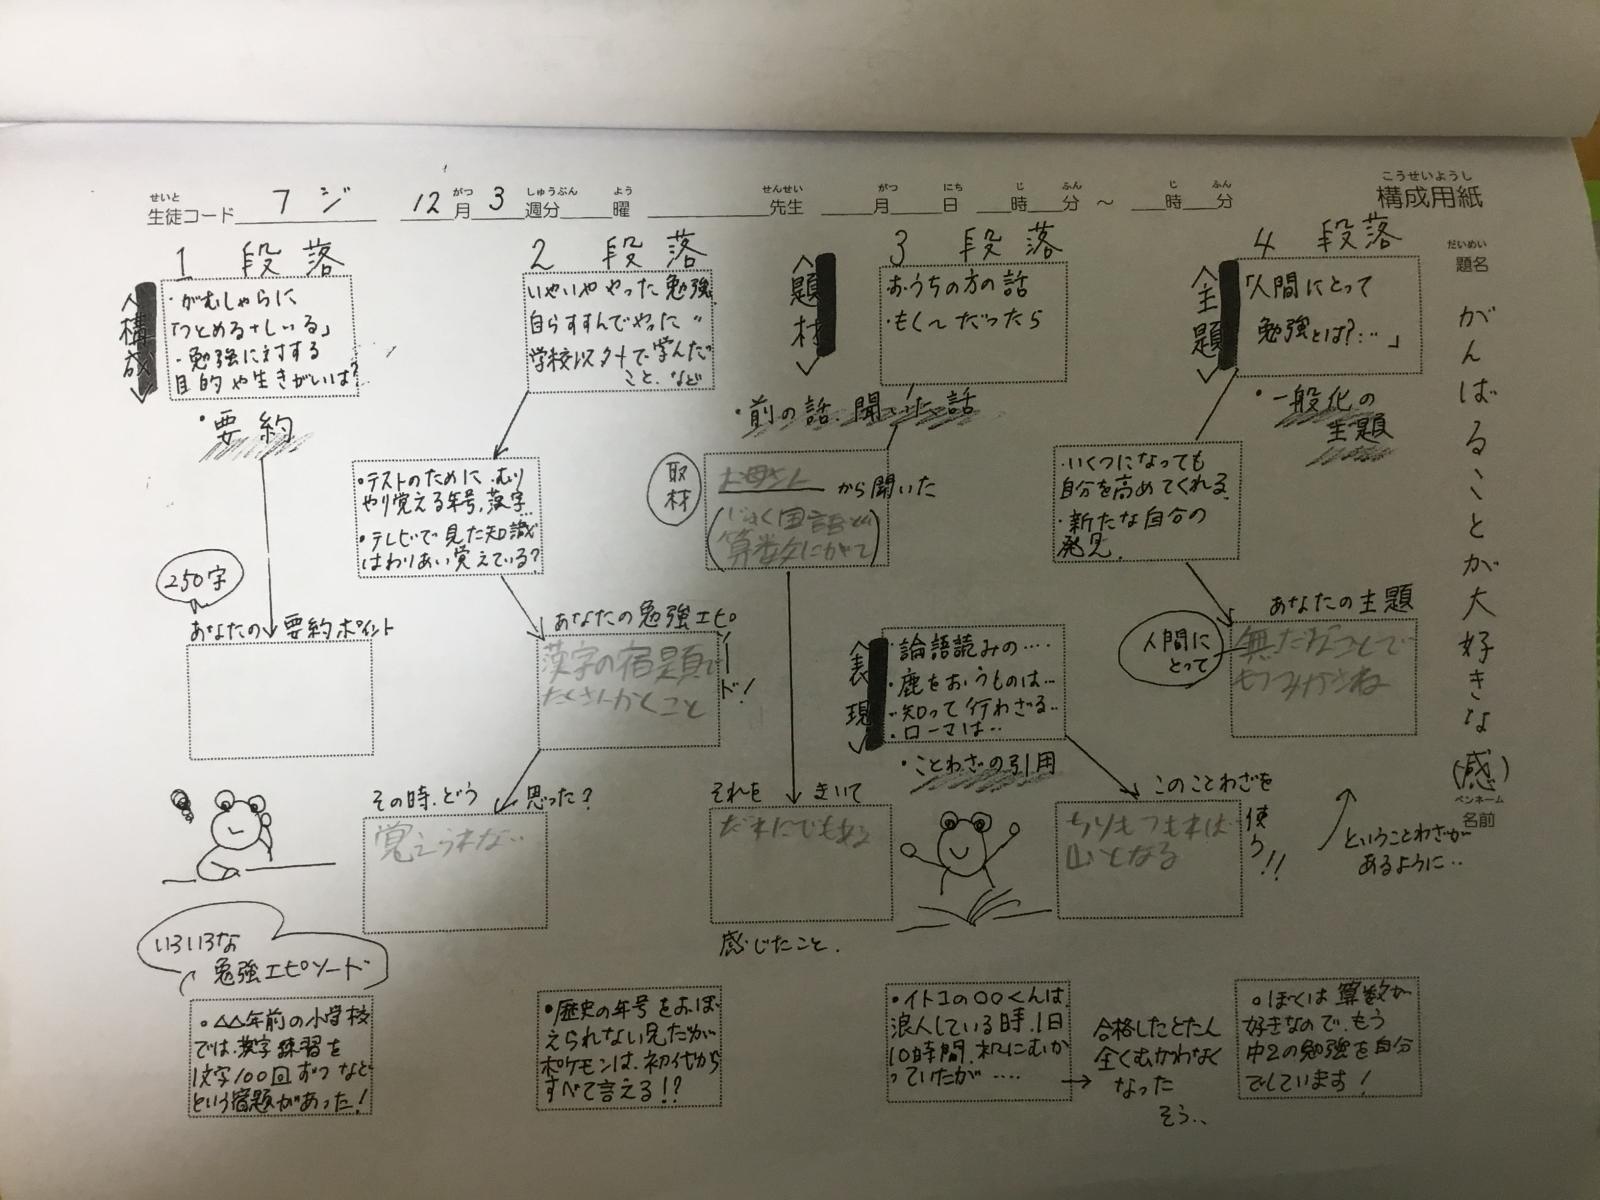 構成用紙
こうせいようし
せいと
生徒コード 7 ジ
12 月 3 週分 曜
がつ しゅうぶん よう
せんせい
先生
がつ にち じ ふん じ ふん
月 日 時 分 ～ 時 分
だいめい
題名
がんばることが大好きな(感)
ペンネーム
名前
1 段落
<構成>
・がむしゃらに
「つとめる+しいる」
・勉強に対する
目的や生きがいは?
・要約
250字
あなたの要約ポイント
2 段落
いやいややった勉強
自らすすんでやった〃
学校以外で学んだ
こと.など
・テストのために、むり
やり覚える年号、漢字
・テレビで見た知識
はわりあい覚えている?
あなたの勉強エピソード!
漢字の宿題で
たくさんかくこと
その時、どう思った?
覚えられない…
<題材>
3 段落
・おうちの方の話
・もし〜だったら
・前の話、聞いた話
取材
お母さん
から聞いた
それをきいて
だれにでもある
感じたこと.
<表現>
・論語読みの‥‥
・鹿をおうものは‥
・知って行わざる‥
・ローマは‥
・ことわざの引用
このことわざを使う!!
ちりもつもれば
山となる
↑ということわざが
あるように‥
<主題>
4 段落
「人間にとって
勉強とは?:‥」
・一般化の
主題
・いくつになっても
自分を高めてくれる
・新たな自分の
発見.
あなたの主題
人間に
とって
いろいろな
勉強エピソード
・△△年前の小学校
では、漢字練習を
1文字100回ずつなど
という宿題があった!
・歴史の年号をおぼ
えられない兄だが
ポケモンは、初代から
すべて言える!?
・イトコの○○くんは、
浪人している時、1日
10時間、机にむか
っていたが‥‥
→合格したとたん
全くむかわなく
なった
そう‥
・ぼくは算数が
好きなので、もう
中2の勉強を自分
でしています!